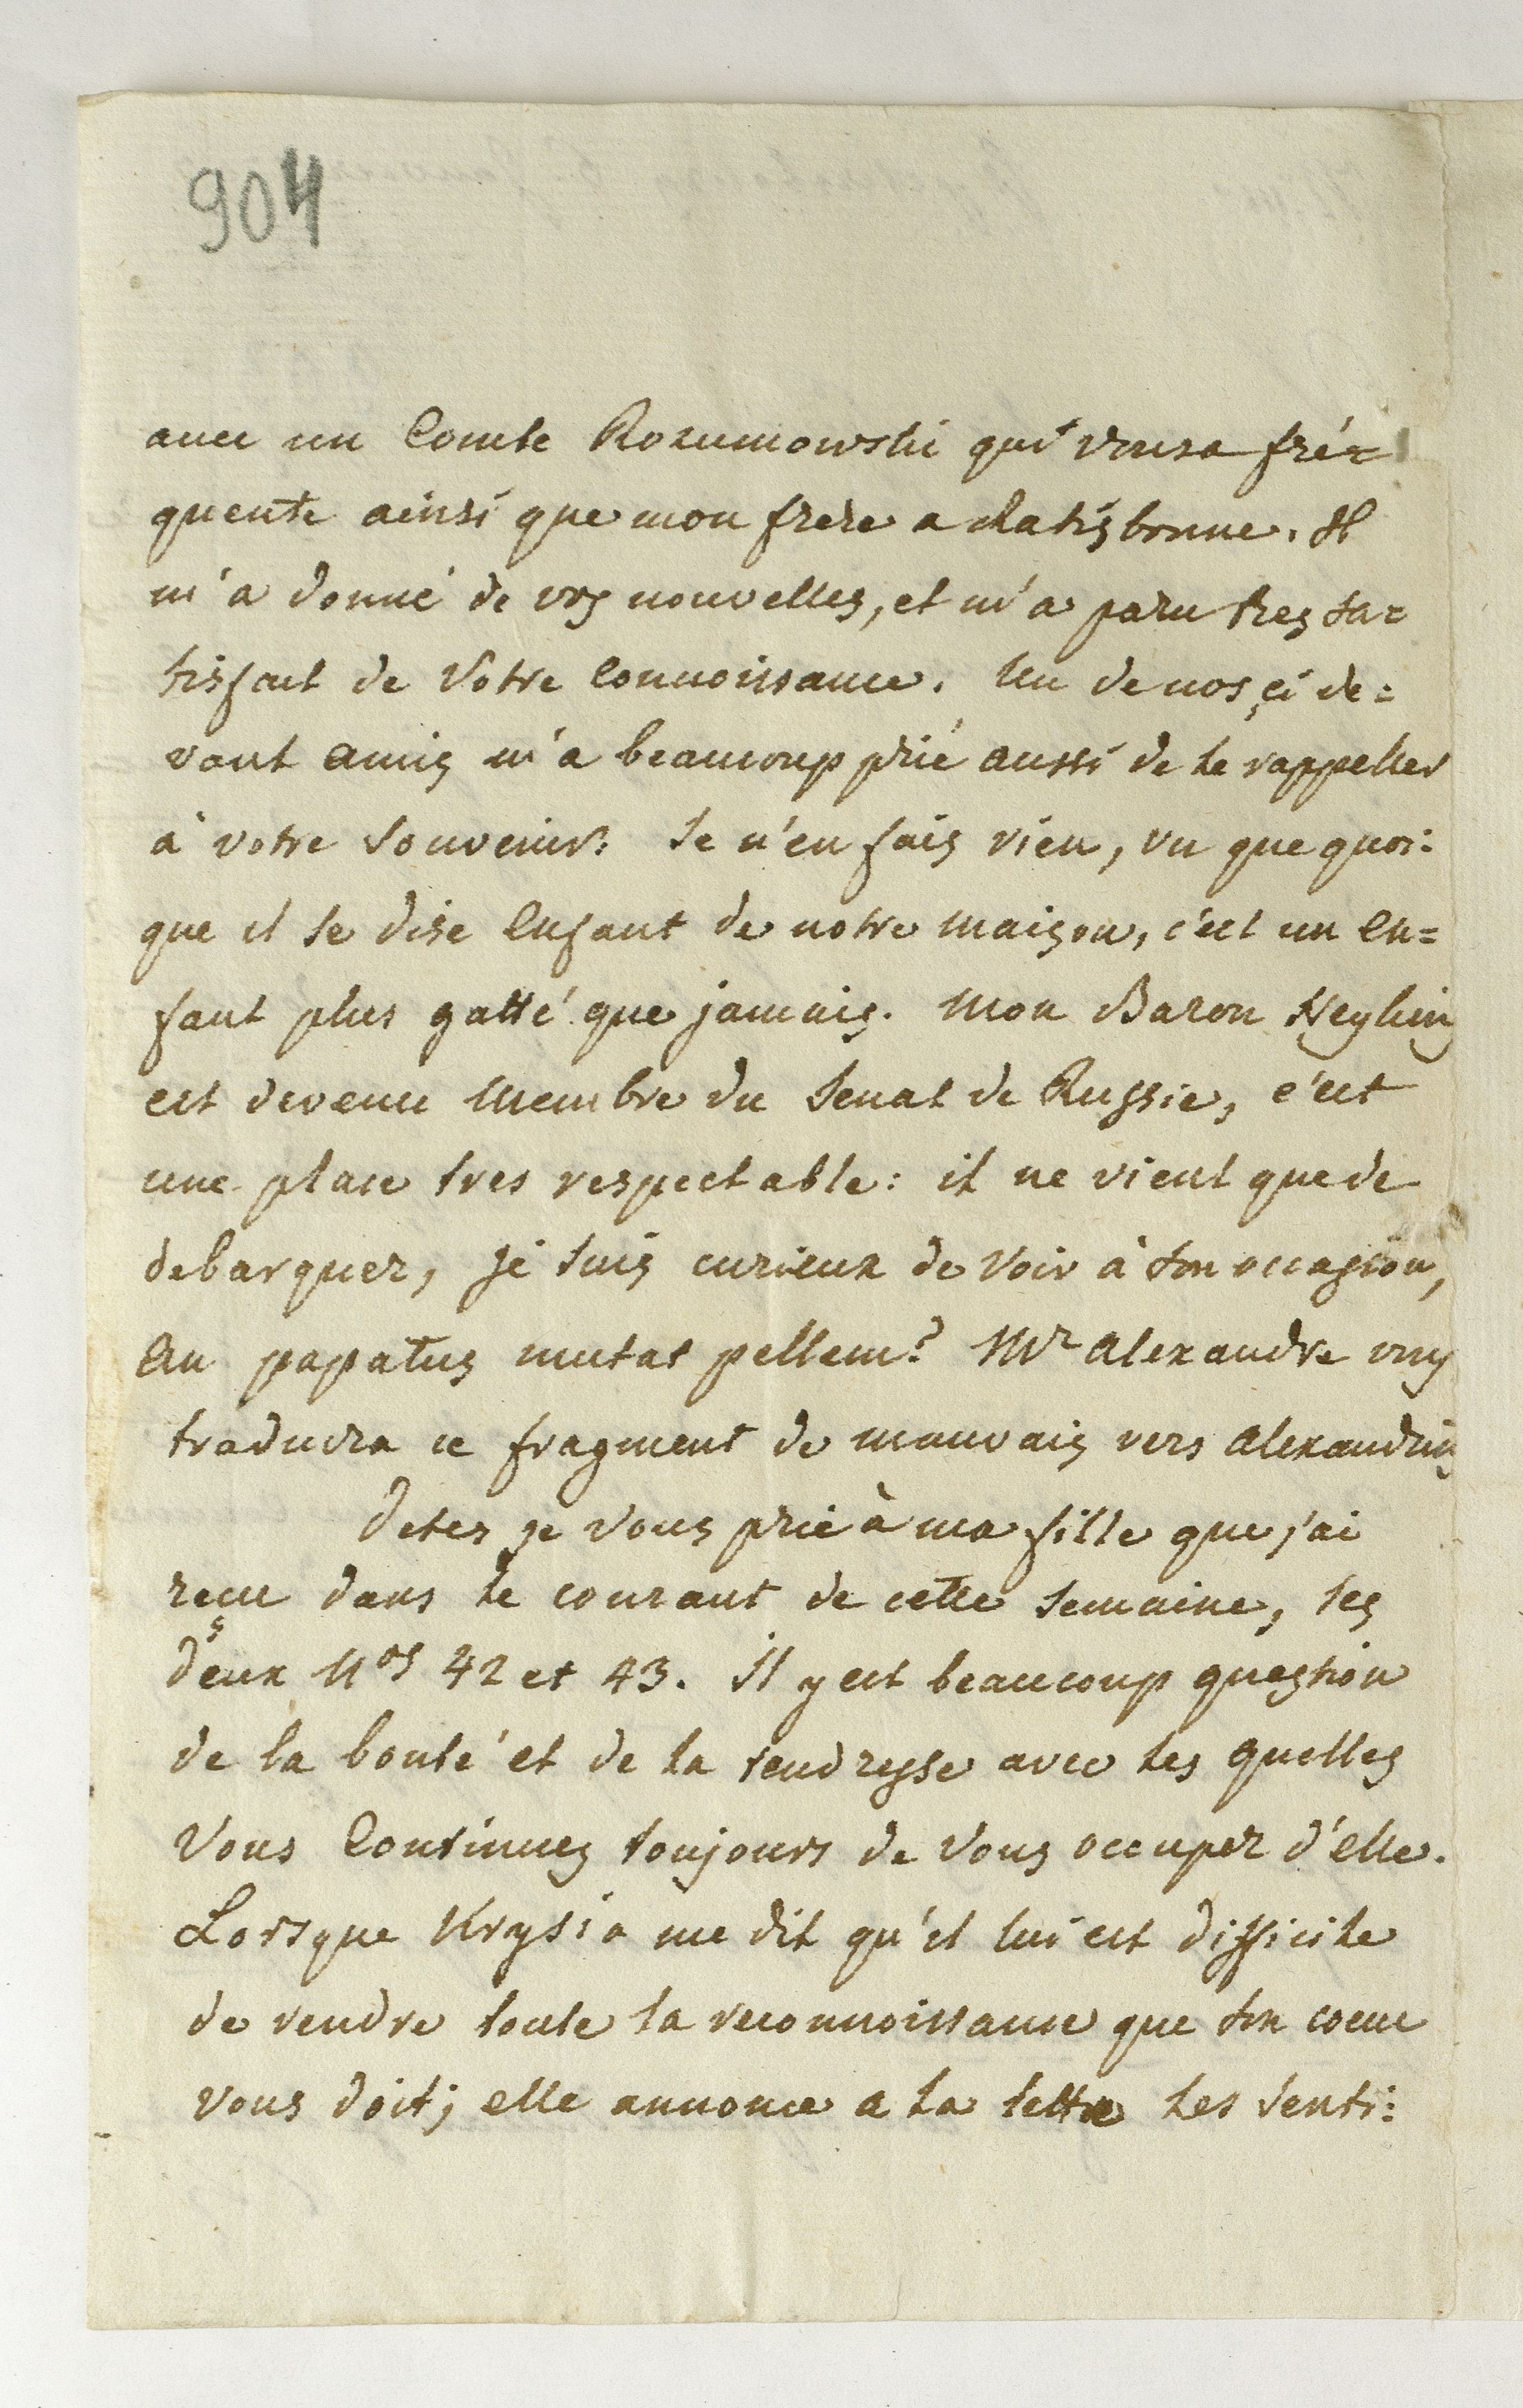 904
avec un Comte Rozumowski qui vous a fré=
quenté ainsi que mon frere a Ratisbonne. Il
m'a donné de vos nouvelles, et m'a paru tres sa=
tisfait de Votre Connoissance. Un de nos çi de=
vant amis m'a beaucoup prié aussi de le rappeller
à votre Souvenir: Je n'en fais rien, vu que quoi=
que il se dise Enfant de notre maison, c'est un En=
fant plus gatté que jamais. Mon Baron Heyking
est devenu Membre du Senat de Russie, c'est
une place tres respectable: il ne vient que de
debarquer, je suis curieux de Voir à son occasion,
An papatus mutat pellem? Mr Alexandre vous
traduira ce fragment de mauvais vers Alexandrins
Dites je Vous prie à ma fille que j'ai
reçu dans le courant de cette Semaine, ses
deux Nos 42 et 43. Il y est beaucoup question
de la bonté et de la tendresse avec les quelles
Vous Continuez toujours de Vous occuper d'elle.
Lorsque Krysia me dit qu'il lui est difficile
de rendre toute la reconnoissance que son coeur
Vous doit; elle annonce a la lettre les Senti=